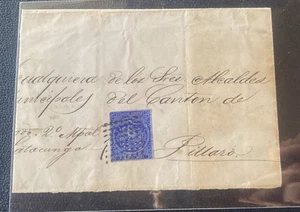 ualquiera de los Sres Alcaldes
unicipales del Canton de
2º Mpal
Pillaro
atacunga